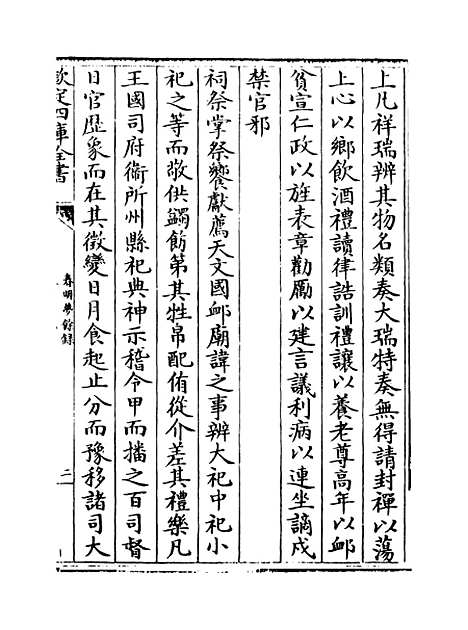 上凡祥瑞辨其物名類奏大瑞特奏無得請封禪以蕩
上心以鄉飲酒禮讀律誥訓禮讓以養老尊高年以䘏
貧宣仁政以旌表章勸勵以建言議利病以連坐謫戍
禁官邪
祠祭掌祭饗獻薦天文國䘏廟諱之事辨大祀中祀小
祀之等而敬供蠲飭第其牲帛配侑從介差其禮樂凡
王國司府衛所州縣祀典神示稽令甲而播之百司督
日官歷象而在其徵變日月食起止分而豫移諸司大
欽定四庫全書
春明夢餘錄
二